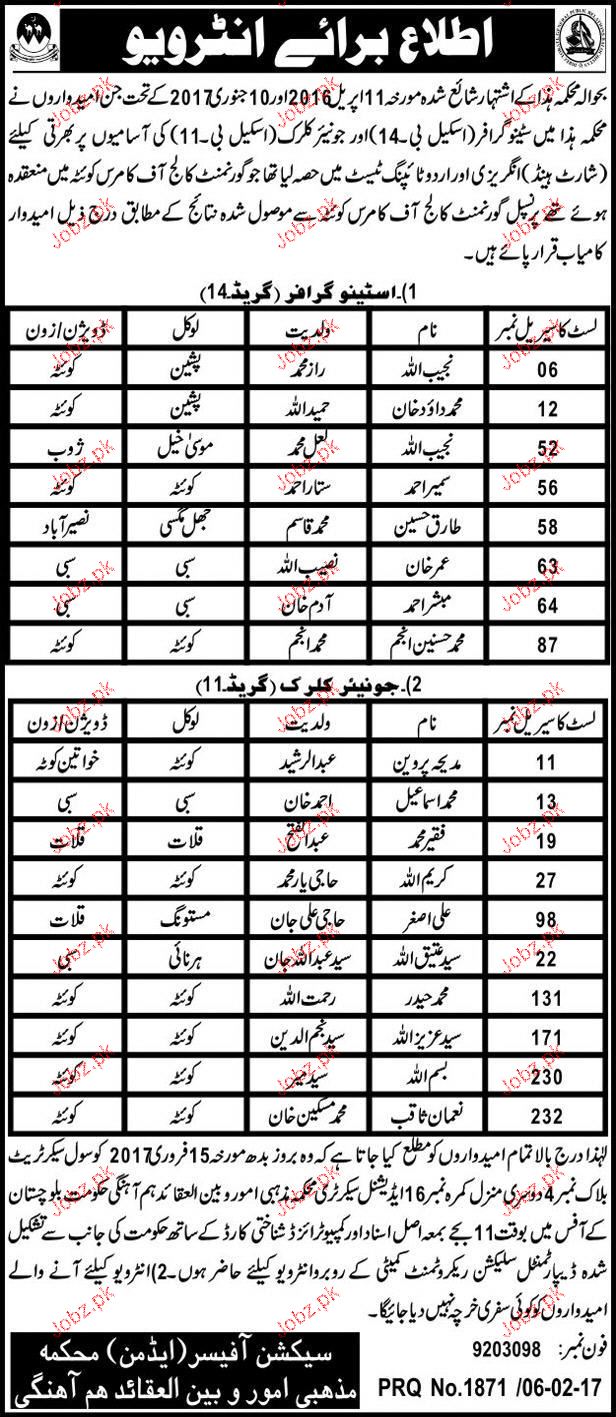 اطلاع برائے انٹرویو
بحوالہ محکمہ ہذا کے اشتہار شائع شدہ مورخہ 11 اپریل 2016 اور 10 جنوری 2017 کے تحت جن امیدواروں نے
محکمہ ہذا میں سٹینوگرافر (اسکیل بی۔14) اور جونیئر کلرک (اسکیل بی۔11) کی آسامیوں پر بھرتی کیلئے
(شارٹ ہینڈ) انگریزی اور اردو ٹائپنگ ٹیسٹ میں حصہ لیا تھا جو گورنمنٹ کالج آف کامرس کوئٹہ میں منعقدہ
ہوئے تھے پرنسپل گورنمنٹ کالج آف کامرس کوئٹہ سے موصول شدہ نتائج کے مطابق درج ذیل امیدوار
کامیاب قرار پائے ہیں۔
1)۔ اسٹینو گرافر (گریڈ۔14)
لسٹ کا سیریل نمبر نام ولدیت لوکل ڈویژن/زون
06 نجیب اللہ راز محمد پشین کوئٹہ
12 محمد داؤد خان حمید اللہ پشین کوئٹہ
52 نجیب اللہ لعل محمد موسیٰ خیل ژوب
56 سمیر احمد ستار احمد کوئٹہ کوئٹہ
58 طارق حسین محمد قاسم جھل مگسی نصیر آباد
63 عمر خان نصیب اللہ سبی سبی
64 مبشر احمد آدم خان سبی سبی
87 محمد حسنین انجم محمد انجم کوئٹہ کوئٹہ
2)۔ جونیئر کلرک (گریڈ۔11)
لسٹ کا سیریل نمبر نام ولدیت لوکل ڈویژن/زون
11 مدیحہ پروین عبدالرشید کوئٹہ خواتین کوٹہ
13 محمد اسماعیل احمد خان سبی سبی
19 فقیر محمد عبدالفتح قلات قلات
27 کریم اللہ حاجی یار محمد کوئٹہ کوئٹہ
98 علی اصغر حاجی علی جان مستونگ قلات
22 سید عتیق اللہ سید عبداللہ جان ہرنائی سبی
131 محمد حیدر رحمت اللہ کوئٹہ کوئٹہ
171 سید عزیز اللہ سید نجم الدین کوئٹہ کوئٹہ
230 بسم اللہ سید میر کوئٹہ کوئٹہ
232 نعمان ثاقب محمد مسکین خان کوئٹہ کوئٹہ
لہٰذا درج بالا تمام امیدواروں کو مطلع کیا جاتا ہے کہ وہ بروز بدھ مورخہ 15 فروری 2017 کو سول سیکرٹریٹ
بلاک نمبر 4 دوسری منزل کمرہ نمبر 16 ایڈیشنل سیکرٹری محکمہ مذہبی امور و بین العقائد ہم آہنگی حکومت بلوچستان
کے آفس میں بوقت 11 بجے بمعہ اصل اسناد اور کمپیوٹرائزڈ شناختی کارڈ کے ساتھ حکومت کی جانب سے تشکیل
شدہ ڈیپارٹمنٹل سلیکشن ریکروٹمنٹ کمیٹی کے روبرو انٹرویو کیلئے حاضر ہوں۔ 2) انٹرویو کیلئے آنے والے
امیدواروں کو کوئی سفری خرچہ نہیں دیا جائیگا۔
فون نمبر: 9203098
PRQ No.1871 /06-02-17
سیکشن آفیسر (ایڈمن) محکمہ
مذہبی امور و بین العقائد ہم آہنگی